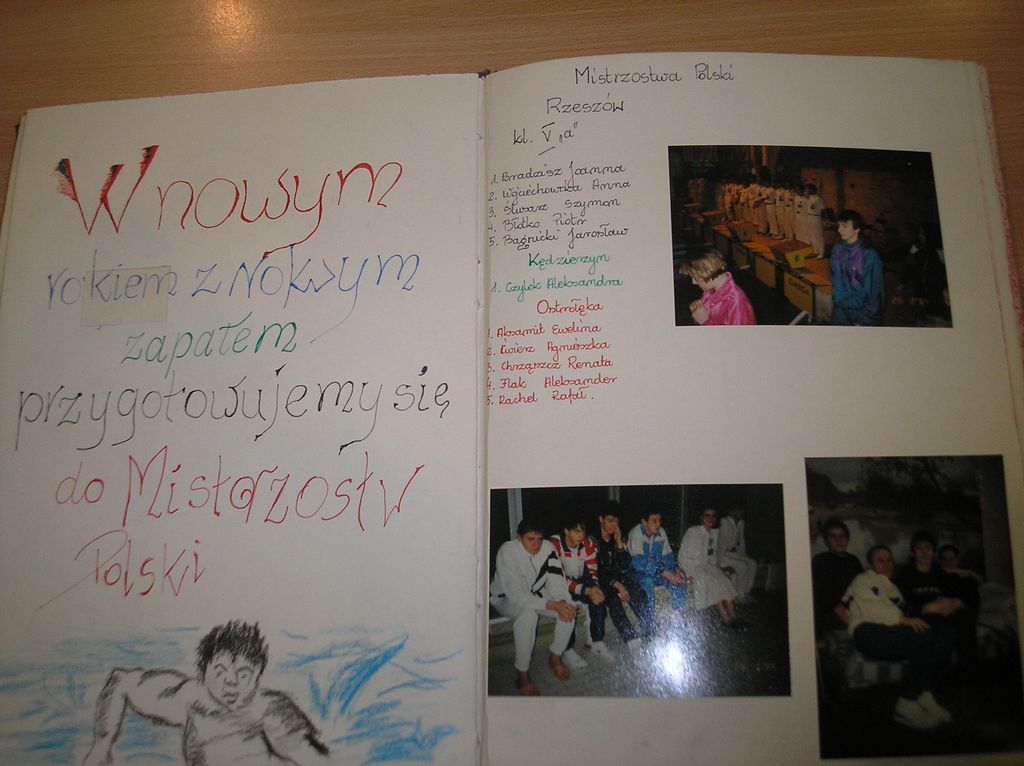 W nowym
rokiem z nowym
zapałem
przygotowujemy się
do Mistrzostw
Polski
Mistrzostwa Polski
Rzeszów
kl. V „a"
1. Bradzisz Joanna
2. Wojciechowska Anna
3. Ślusarz Szymon
4. Błotko Piotr
5. Bagnicki Jarosław
Kędzierzyn
1. Czylok Aleksandra
Ostrołęka
1. Aksamit Ewelina
2. Ćwierz Agnieszka
3. Chrząszcz Renata
4. Flak Aleksander
5. Rachel Rafał.